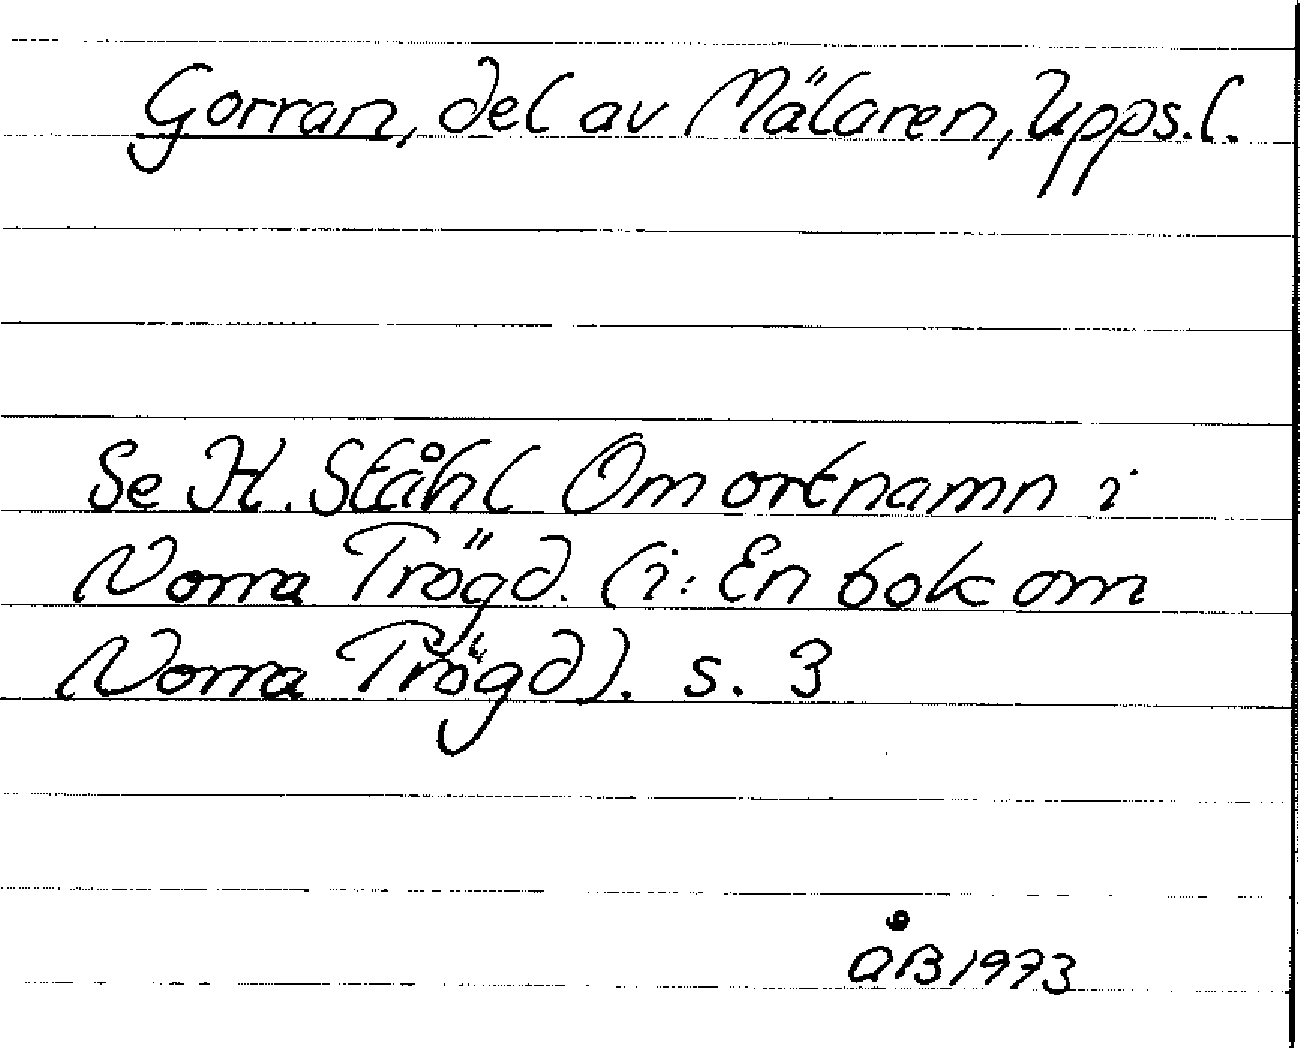 Gorran, del av Mälaren, Upps. l.
Se H. Ståhl Om ortnamn i
Norra Trögd. (i: En bok om
Norra Trögd). s. 3
ÅB 1973